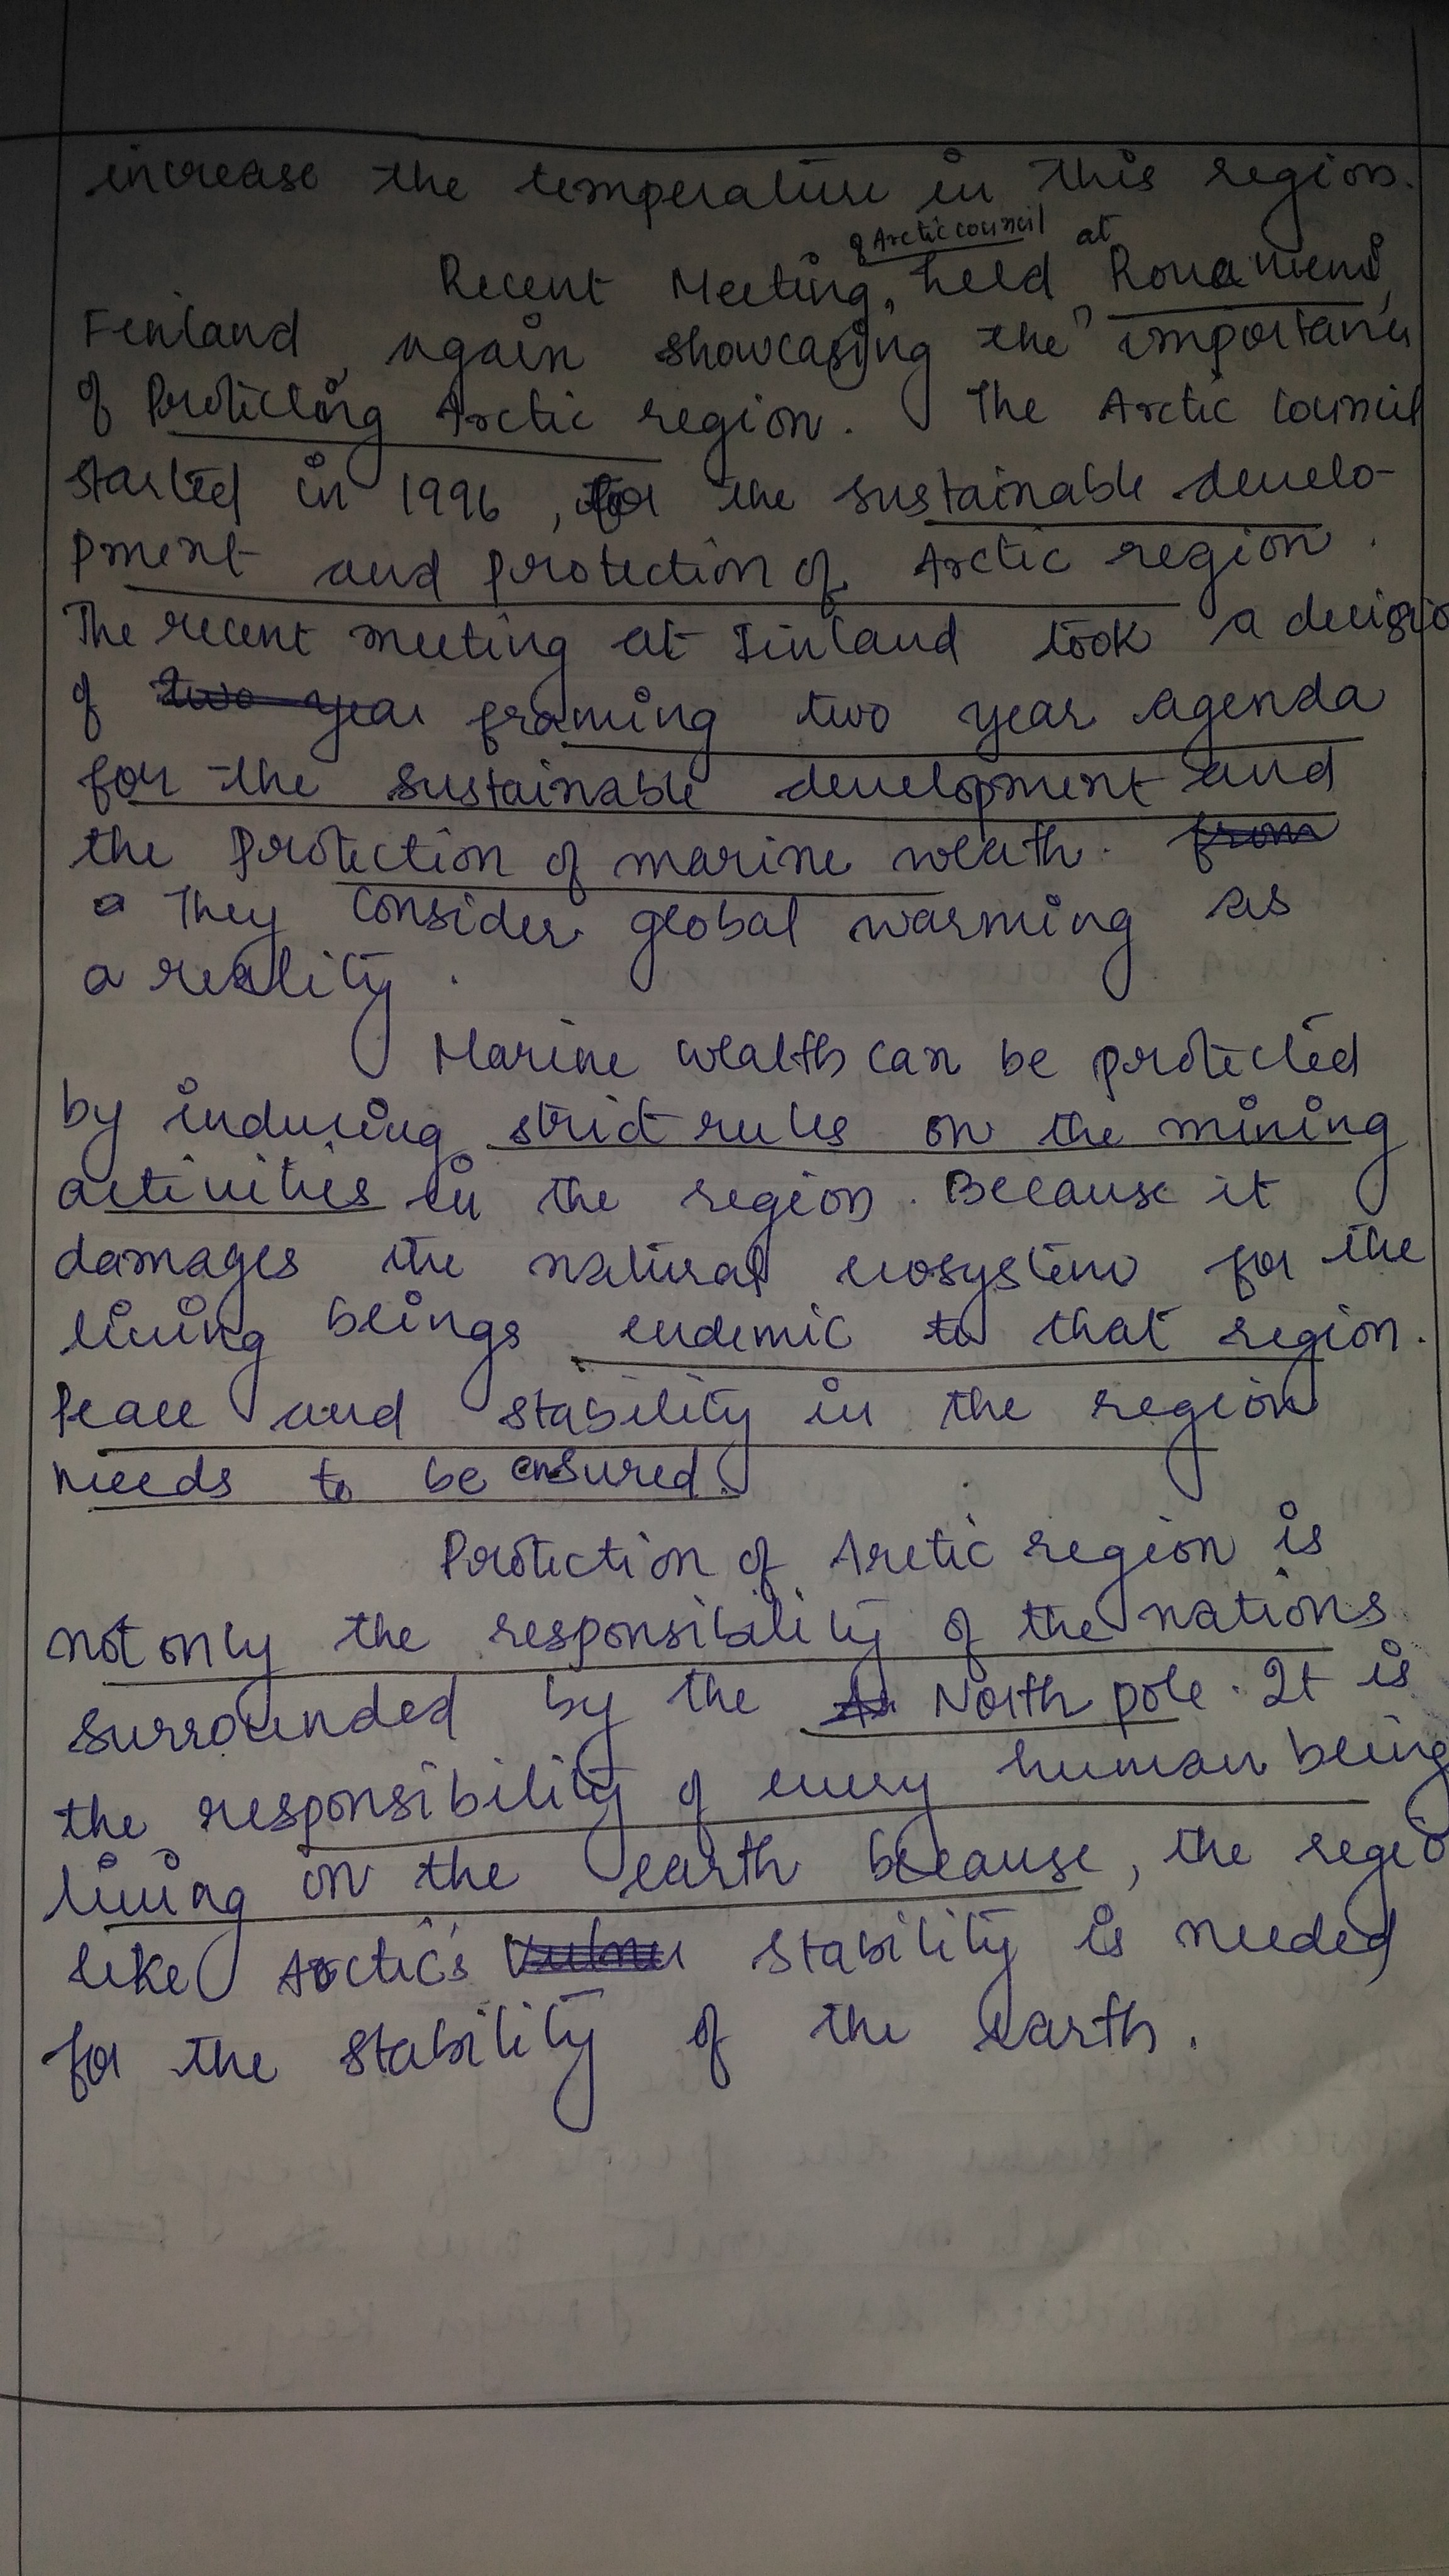 increase the temperature in this region.
of Arctic council at
Recent Meeting, held Rovaniemi,
Finland, again showcasing the importance
of Protecting Arctic region. The Arctic Council
started in 1996, for the sustainable develo-
pment and protection of Arctic region.
The recent meeting at Finland took a decisio
of two year framing two year agenda
for the sustainable development and
the protection of marine wealth. from
They consider global warming as
a reality.
Marine wealth can be protected
by inducing strict rules on the mining
activities in the region. Because it
damages the natural ecosystem for the
living beings endemic to that region.
Peace and stability in the region
needs to be ensured.
Protection of Arctic region is
not only the responsibility of the nations
surrounded by the North pole. It is
the responsibility of every human being
living on the earth because, the regio
like Arctic's stability is needed
for the stability of the earth.